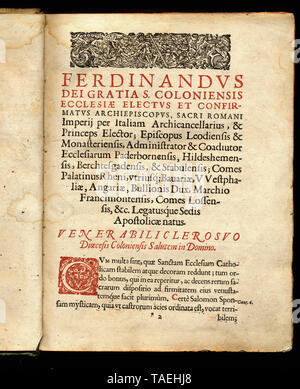 FERDINANDVS
DEI GRATIA S. COLONIENSIS
ECCLESIÆ ELECTVS ET CONFIR-
MATVS ARCHIEPISCOPVS, SACRI ROMANI
Imperij per Italiam Archicancellarius, &
Princeps Elector; Episcopus Leodiensis &
Monasteriensis, Administrator & Coadiutor
Ecclesiarum Paderbornensis, Hildeshemen-
sis, Berchtesgadensis, & Stabulensis; Comes
Palatinus Rheni, vtriusq; Bauariæ, VVestpha-
liæ, Angariæ, Bullionis Dux. Marchio
Francimontensis, Comes Lossen-
sis, &c. Legatusque Sedis
Apostolicæ natus.
VENERABILI CLERO SVO
Diœcesis Coloniensis Salutem in Domino.
CVM multa sint, quæ Sanctam Ecclesiam Catho-
licam stabilem atque decoram reddunt; tum or-
do bonus, qui in ea reperitur, ac decens rerum sa-
crarum dispositio ad firmitatem eius venusta-
temque facit plurimum. Certè Salomon Spon-
sam mysticam, quia vt castrorum acies ordinata est, vocat terri-
bilem;
alamy
TAEHJ8
www.alamy.com